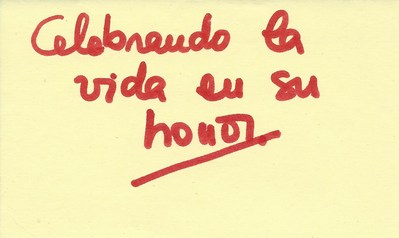 Celebrando la
vida en su
honor.